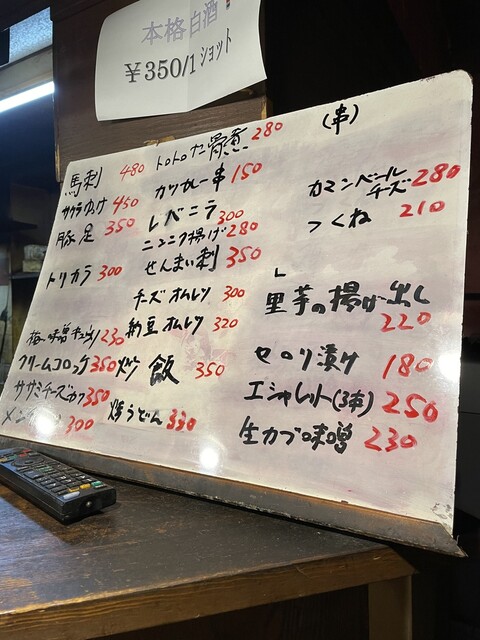 本格白酒
¥350/1ショット
(串)
馬刺 480
サクラユッケ 450
豚足 350
トリカラ 300
230
クリームコロッケ 350
ササミチーズカツ 350
300
トロトロナンコツ煮 280
カツカレー串 150
レバニラ 300
ニンニク揚げ 280
せんまい刺 350
チーズオムレツ 300
納豆オムレツ 320
炒飯 350
焼うどん 330
カマンベール
チーズ 280
つくね 210
里芋の揚げ出し
220
セロリ漬け 180
エシャレット(3本) 250
生カブ味噌 230